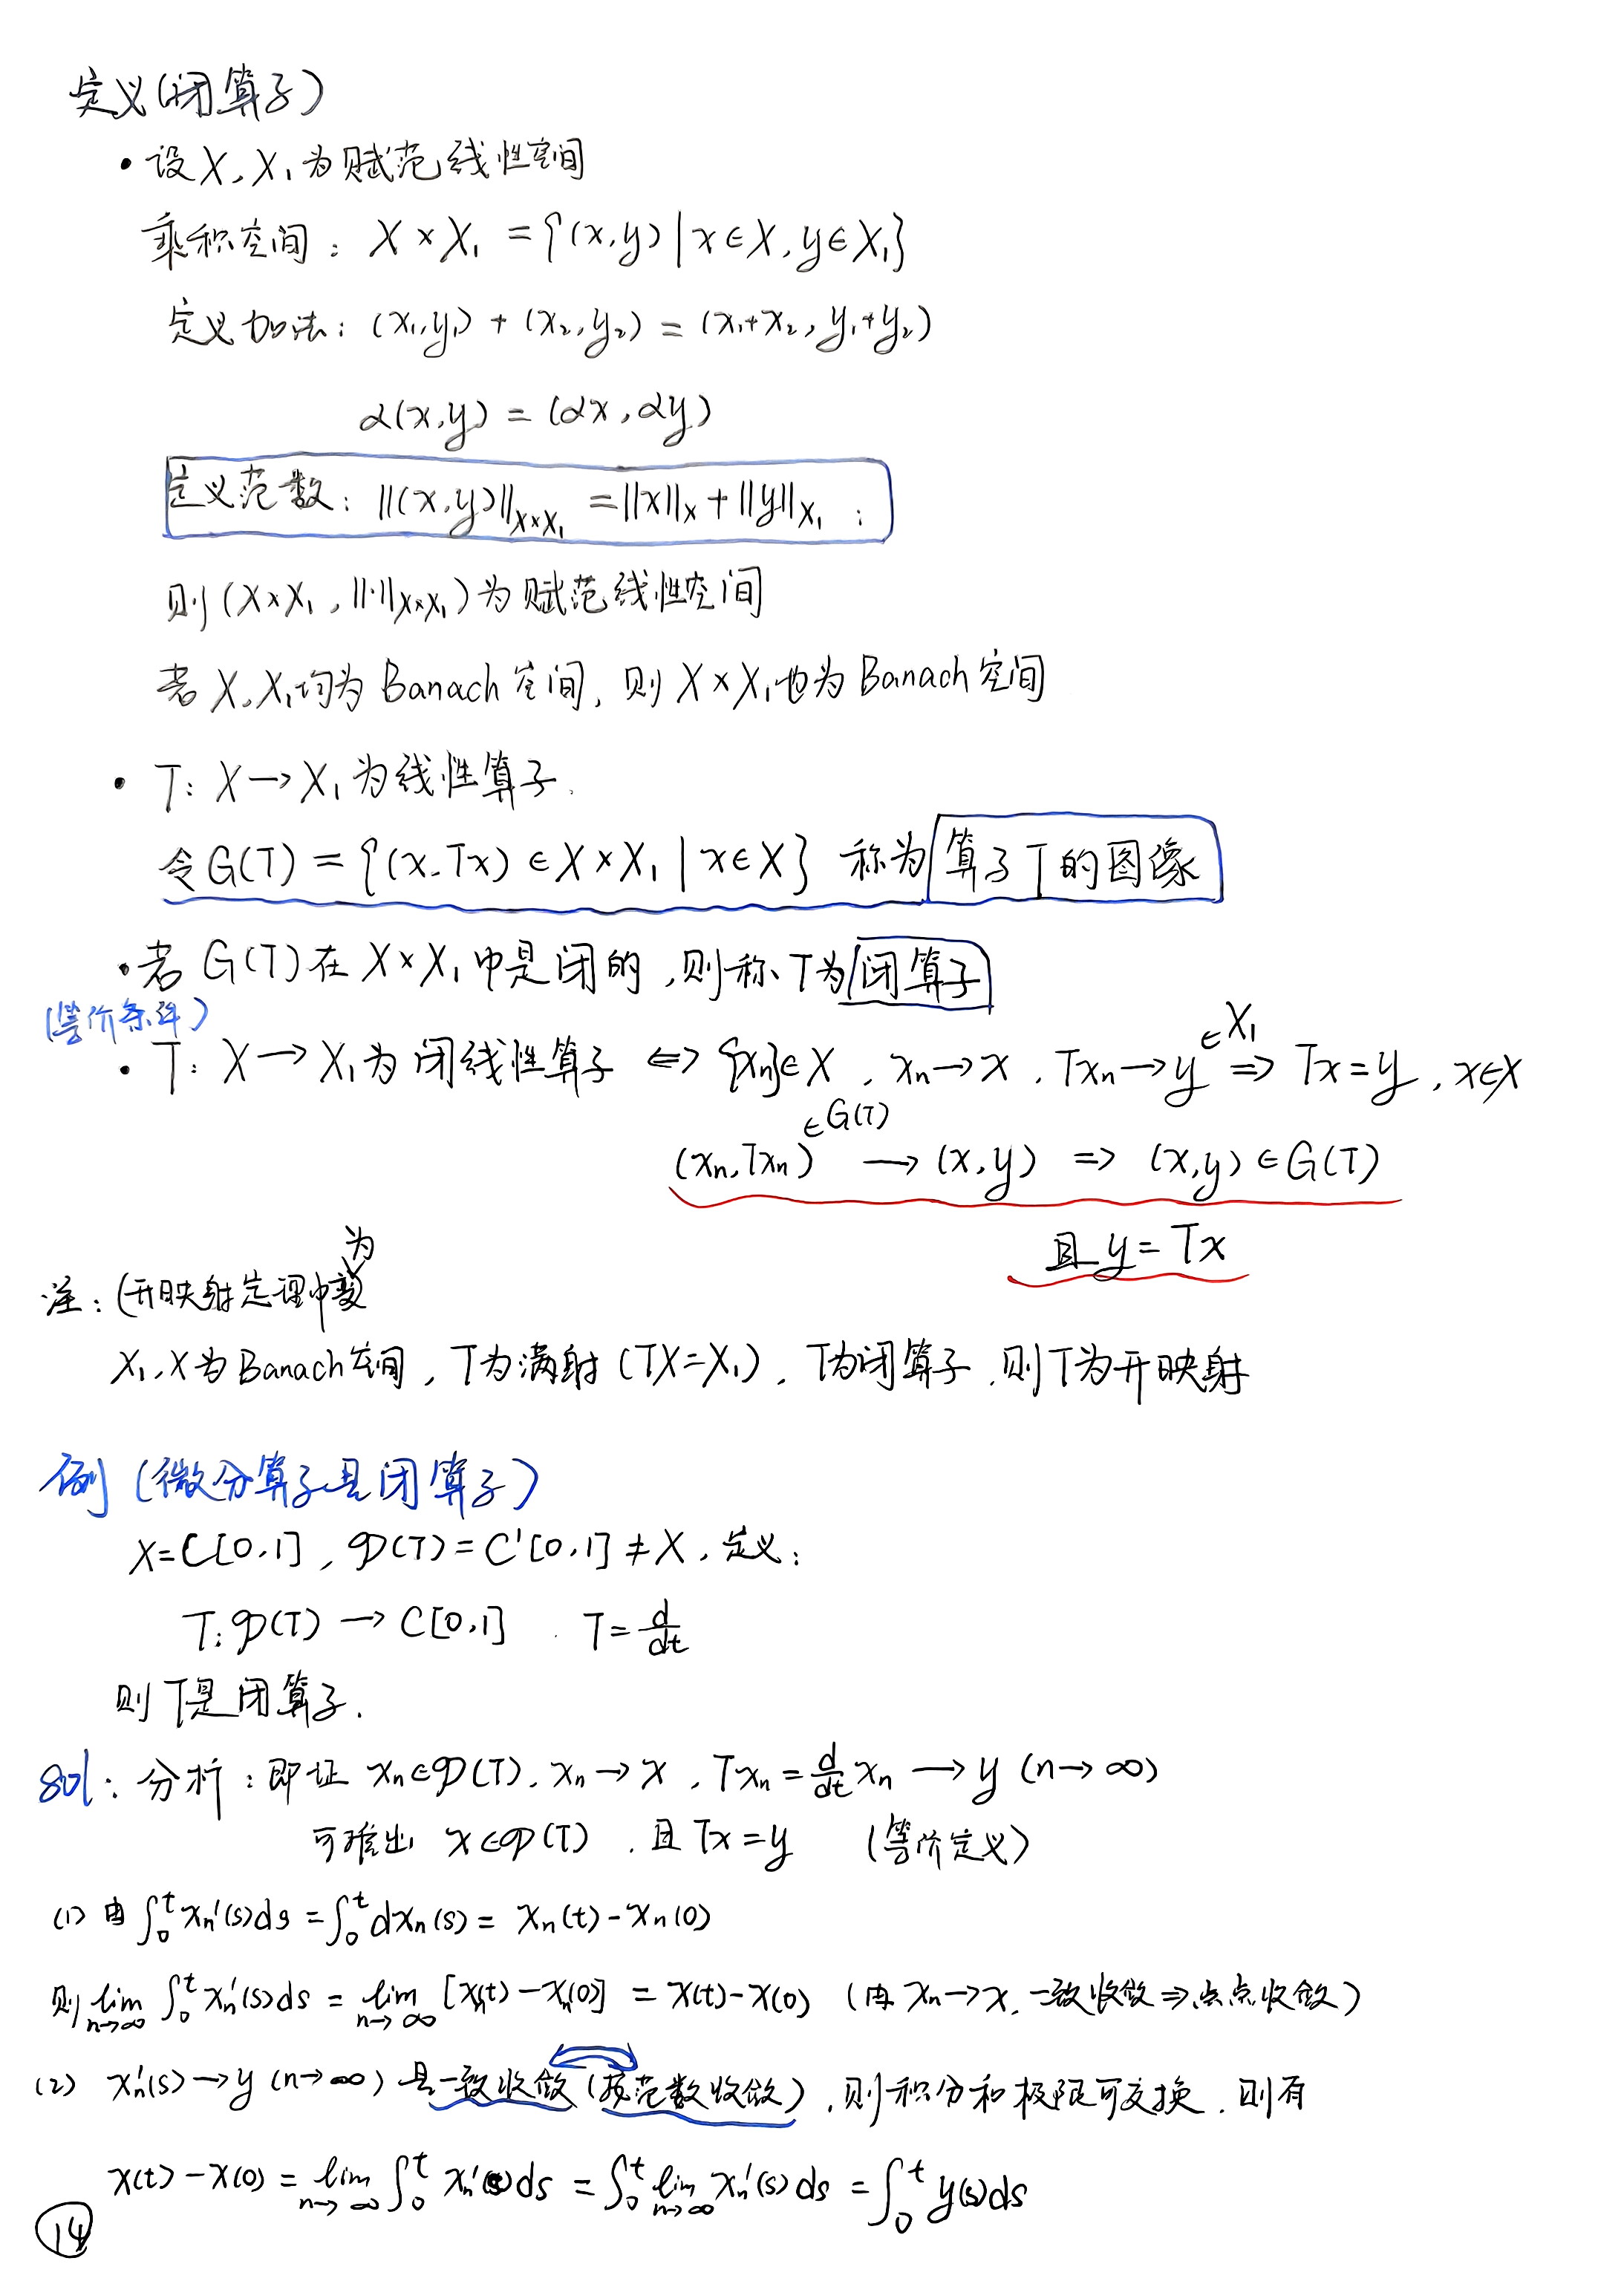 定义(闭算子)
• 设 X, X₁ 为赋范线性空间
乘积空间: X × X₁ = {(x,y) | x∈X, y∈X₁}
定义加法: (x₁,y₁) + (x₂,y₂) = (x₁+x₂, y₁+y₂)
α(x,y) = (αx, αy)
定义范数: ‖(x,y)‖_{X×X₁} = ‖x‖_X + ‖y‖_{X₁} ;
则 (X×X₁, ‖·‖_{X×X₁}) 为赋范线性空间
若 X, X₁均为 Banach 空间, 则 X × X₁也为 Banach 空间
• T: X → X₁ 为线性算子.
令 G(T) = {(x, Tx) ∈ X × X₁ | x∈X} 称为 算子 T 的图像
• 若 G(T) 在 X × X₁ 中是闭的, 则称 T 为 闭算子
(等价条件)
• T: X → X₁为 闭线性算子 ⟺ {xₙ}∈X, xₙ→x, Txₙ→y ∈X₁ ⇒ Tx=y, x∈X
(xₙ,Txₙ) ∈G(T) → (x,y) ⇒ (x,y)∈G(T)
且 y = Tx
注: (开映射定理中变为
X₁, X 为 Banach 空间, T为满射 (TX=X₁), T为闭算子, 则 T 为开映射
例 (微分算子是闭算子)
X=C[0,1], 𝒟(T) = C'[0,1] ≠ X, 定义:
T: 𝒟(T) → C[0,1] . T = d/dt
则 T是闭算子.
sol: 分析: 即证 xₙ∈𝒟(T), xₙ→x, Txₙ = d/dt xₙ → y (n→∞)
可推出 x∈𝒟(T), 且 Tx=y (等价定义)
(1) 由 ∫₀ᵗ xₙ'(s)ds = ∫₀ᵗ dxₙ(s) = xₙ(t) - xₙ(0)
则 lim_{n→∞} ∫₀ᵗ xₙ'(s)ds = lim_{n→∞} [xₙ(t) - xₙ(0)] = x(t) - x(0) (由 xₙ→x, 一致收敛 ⇒ 点点收敛)
(2) xₙ'(s) → y (n→∞) 是一致收敛 (按范数收敛), 则积分和极限可交换, 则有
x(t) - x(0) = lim_{n→∞} ∫₀ᵗ xₙ'(s)ds = ∫₀ᵗ lim_{n→∞} xₙ'(s)ds = ∫₀ᵗ y(s)ds
14